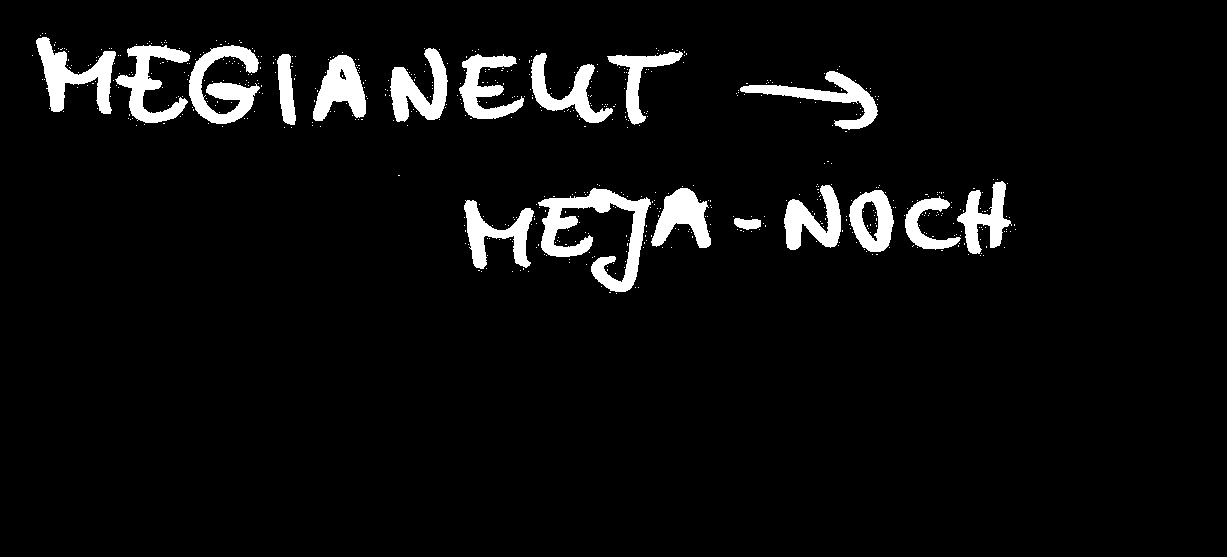 MEGIANEUT →
MEJA-NOCH